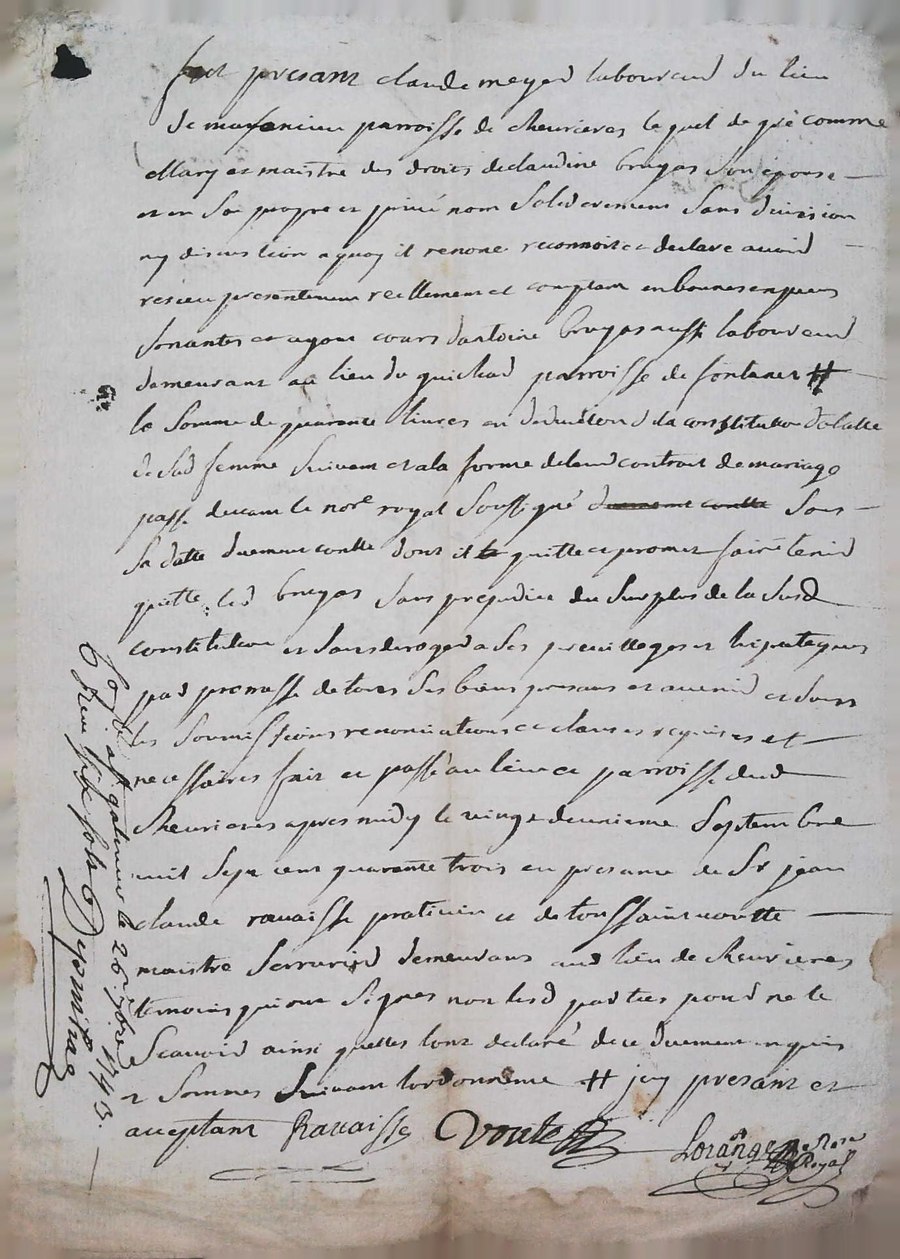 fut presant claude meyer laboureur du lieu
de parroisse de cheurieres lequel de gré comme
Mary et maistre des droits de claudine bruyas son epouse
et en son propre et privé nom solidairement sans division
ny discution a quoy il renonce reconnoit et declare avoir
resceu presentement reellement et comptant en bonnes especes
sonantes et ayant cours dantoine bruyas aussi laboureur
demeurant au lieu du guichard parroisse de fontanes #
la somme de quarante livres en deduction de la constitution dotalle
de sad femme suivant et a la forme de leur contrat de mariage
passé devant le nore royal soussigné duement contlle sous
sa datte duement contlle dont il quitte et promet faire tenir
quitte led bruyas sans prejudice du surplus de la susd
constitution et sans deroger a ses previlleges et hipoteques
par promesse de tous ses biens presans et avenir et sous
les soumissions renonciations et clauses requises et
necessaires fait et passé au lieu et parroisse dud
cheurieres apres midy le vingt deuxieme septembre
mil sept cent quarante trois en presance de Sr jean
claude ravaisse praticien et de toussaint voutte
maistre serrurier demeurans aud lieu de cheurieres
temoins qui ont signés non lesd parties pour ne le
scavoir ainsi quelles lont declaré de ce duement enquis
et sommés suivant lordonnence # icy presant et
acceptant Ravaisse Voute
Lorange Nore
Royal
Coller a st galmier le 26 7bre 1743.
Reçu six sols Dupuy